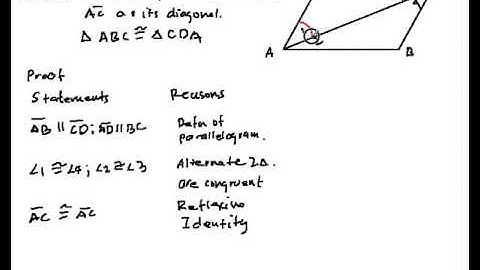 AC as its diagonal.
Δ ABC ≅ Δ CDA
A
B
Proof
Statements Reasons
AB || CD; AD || BC Defn of
parallelogram.
∠1 ≅ ∠4; ∠2 ≅ ∠3 Alternate I∠.
are congruent
AC ≅ AC Reflexive
Identity